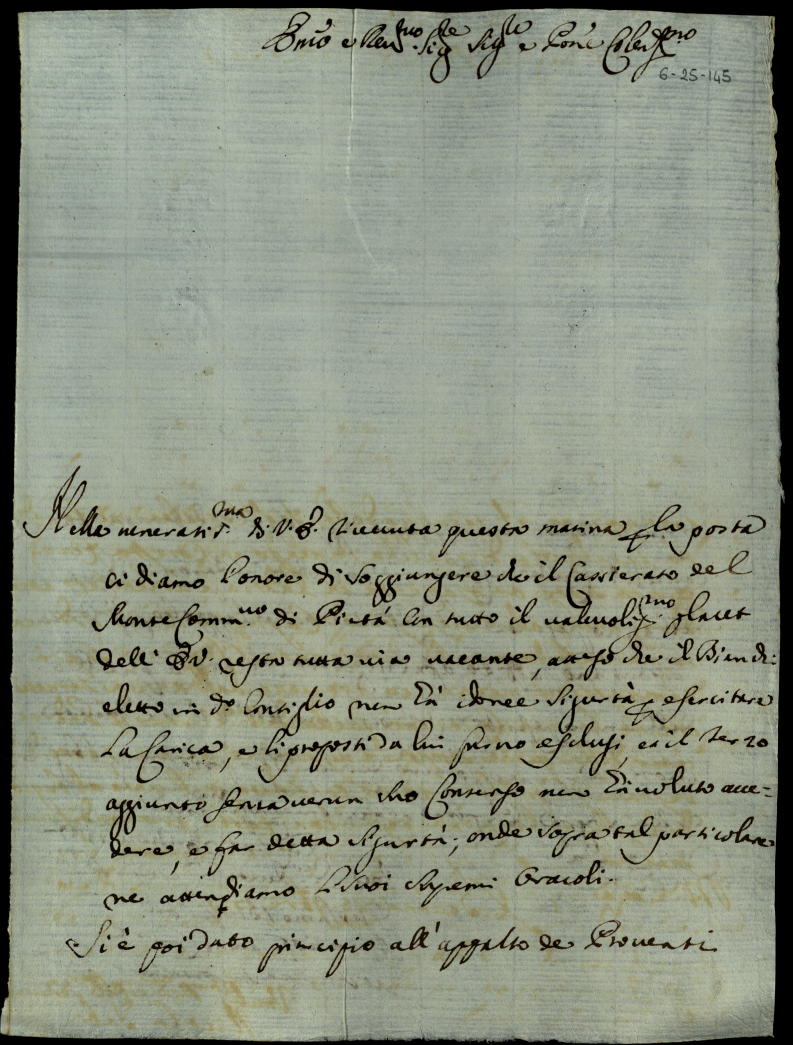 Emo e Rev.mo Sig.re Sig.re e Prōne Coled.mo
6-25-145
Nella veneratis.ma di V. E. ricevuta questa matina p la posta
ci diamo l'onore di soggiungere che il Cassierato del
Monte Comm.vo di Pietà con tutto il valevolis.mo placet
dell' E.V. resta tutta via vacante, atteso che il Bianchi
eletto in d.o Consiglio non hà idonee sigurtà p esercitare
La Carica, e li proposti da lui furno esclusi, ed il terzo
aggiunto senza verun suo Consenso non hà voluto acce=
dere, e far detta sigurtà; onde sopra tal particolare
ne attendiamo i suoi supremi Oracoli.
Si è poi dato principio all'appalto de Proventi